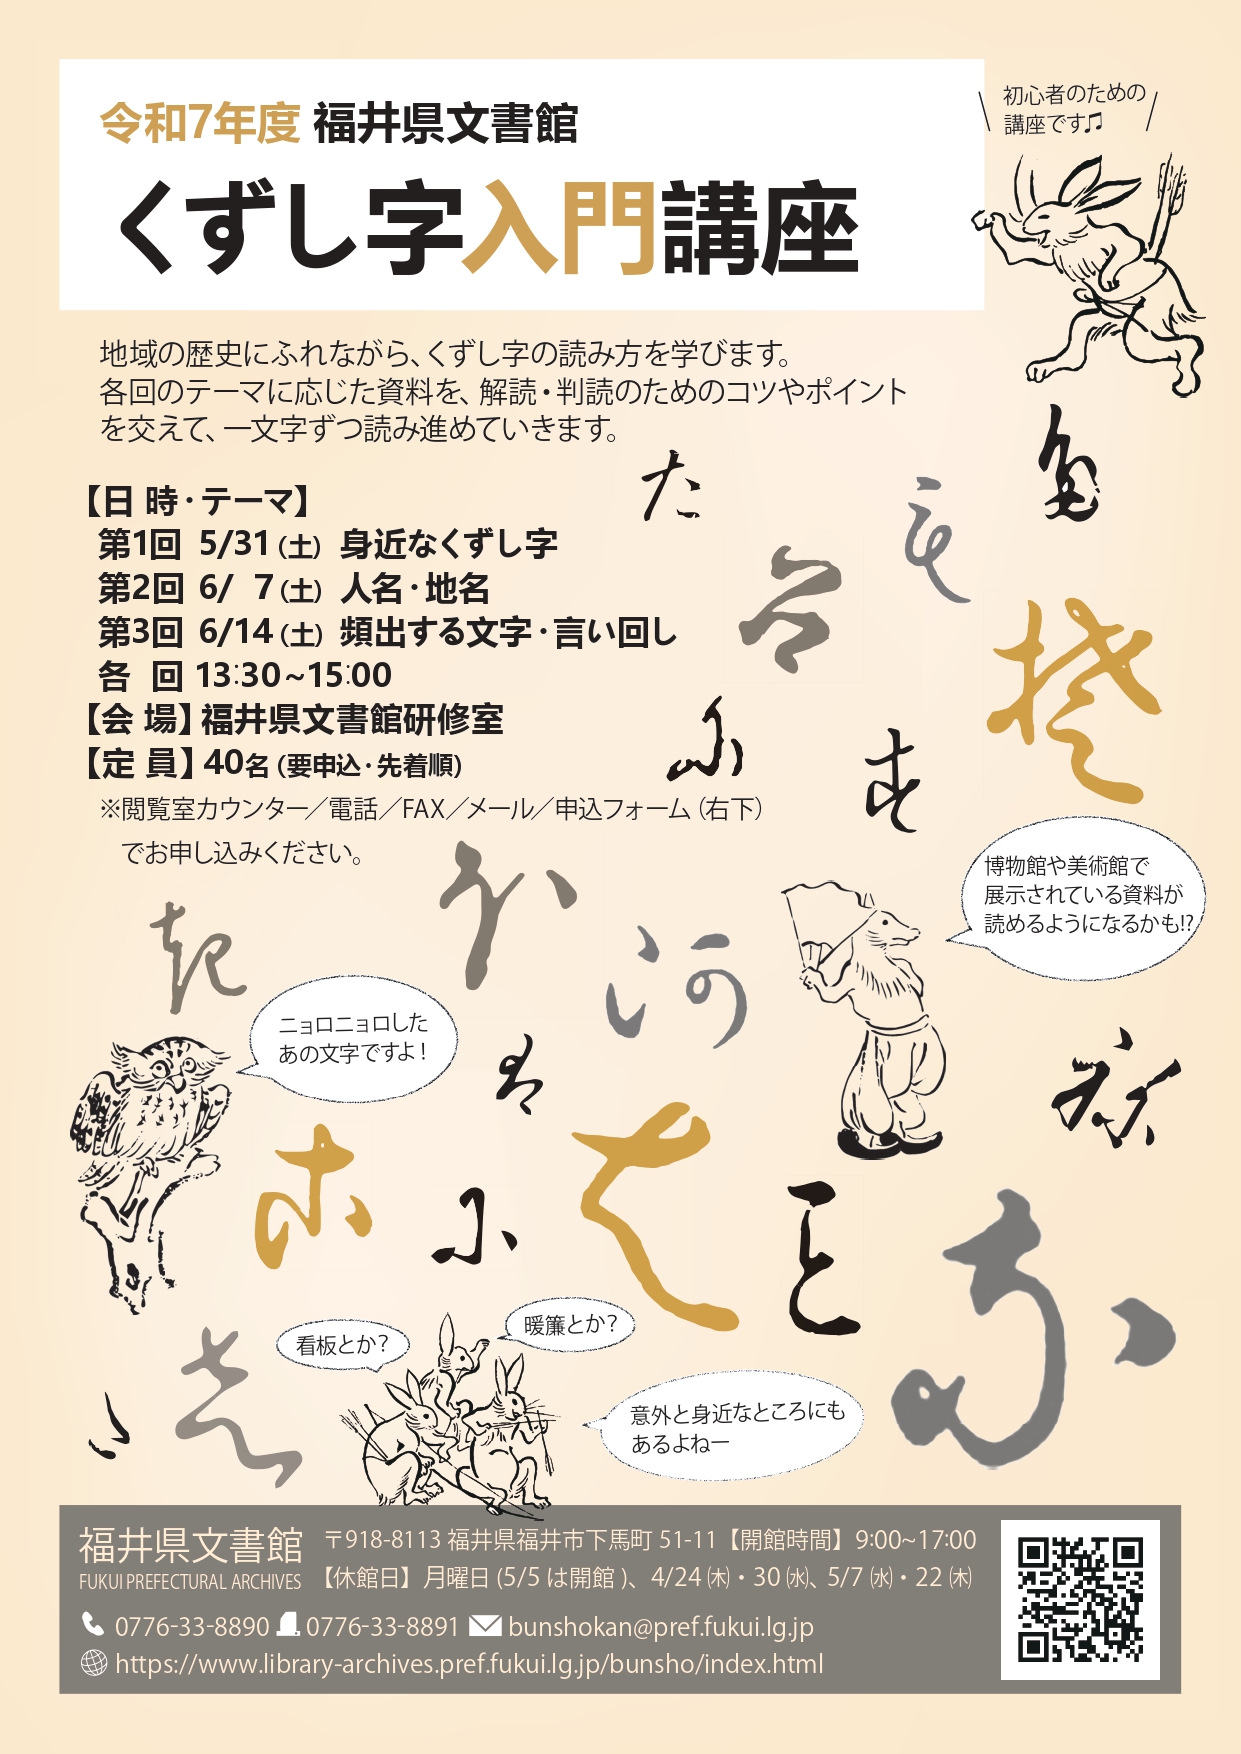 令和7年度 福井県文書館
くずし字入門講座
初心者のための
講座です♫
地域の歴史にふれながら、くずし字の読み方を学びます。
各回のテーマに応じた資料を、解読・判読のためのコツやポイント
を交えて、一文字ずつ読み進めていきます。
【日 時・テーマ】
第1回 5/31(土) 身近なくずし字
第2回 6/ 7(土) 人名・地名
第3回 6/14(土) 頻出する文字・言い回し
各 回 13:30~15:00
【会 場】福井県文書館研修室
【定 員】40名(要申込・先着順)
※閲覧室カウンター／電話／FAX／メール／申込フォーム(右下)
でお申し込みください。
博物館や美術館で
展示されている資料が
読めるようになるかも!?
ニョロニョロした
あの文字ですよ！
看板とか？
暖簾とか？
意外と身近なところにも
あるよねー
福井県文書館
FUKUI PREFECTURAL ARCHIVES
〒918-8113 福井県福井市下馬町 51-11【開館時間】9:00~17:00
【休館日】月曜日(5/5は開館)、4/24㈭・30㈬、5/7㈬・22㈭
0776-33-8890 0776-33-8891 bunshokan@pref.fukui.lg.jp
https://www.library-archives.pref.fukui.lg.jp/bunsho/index.html